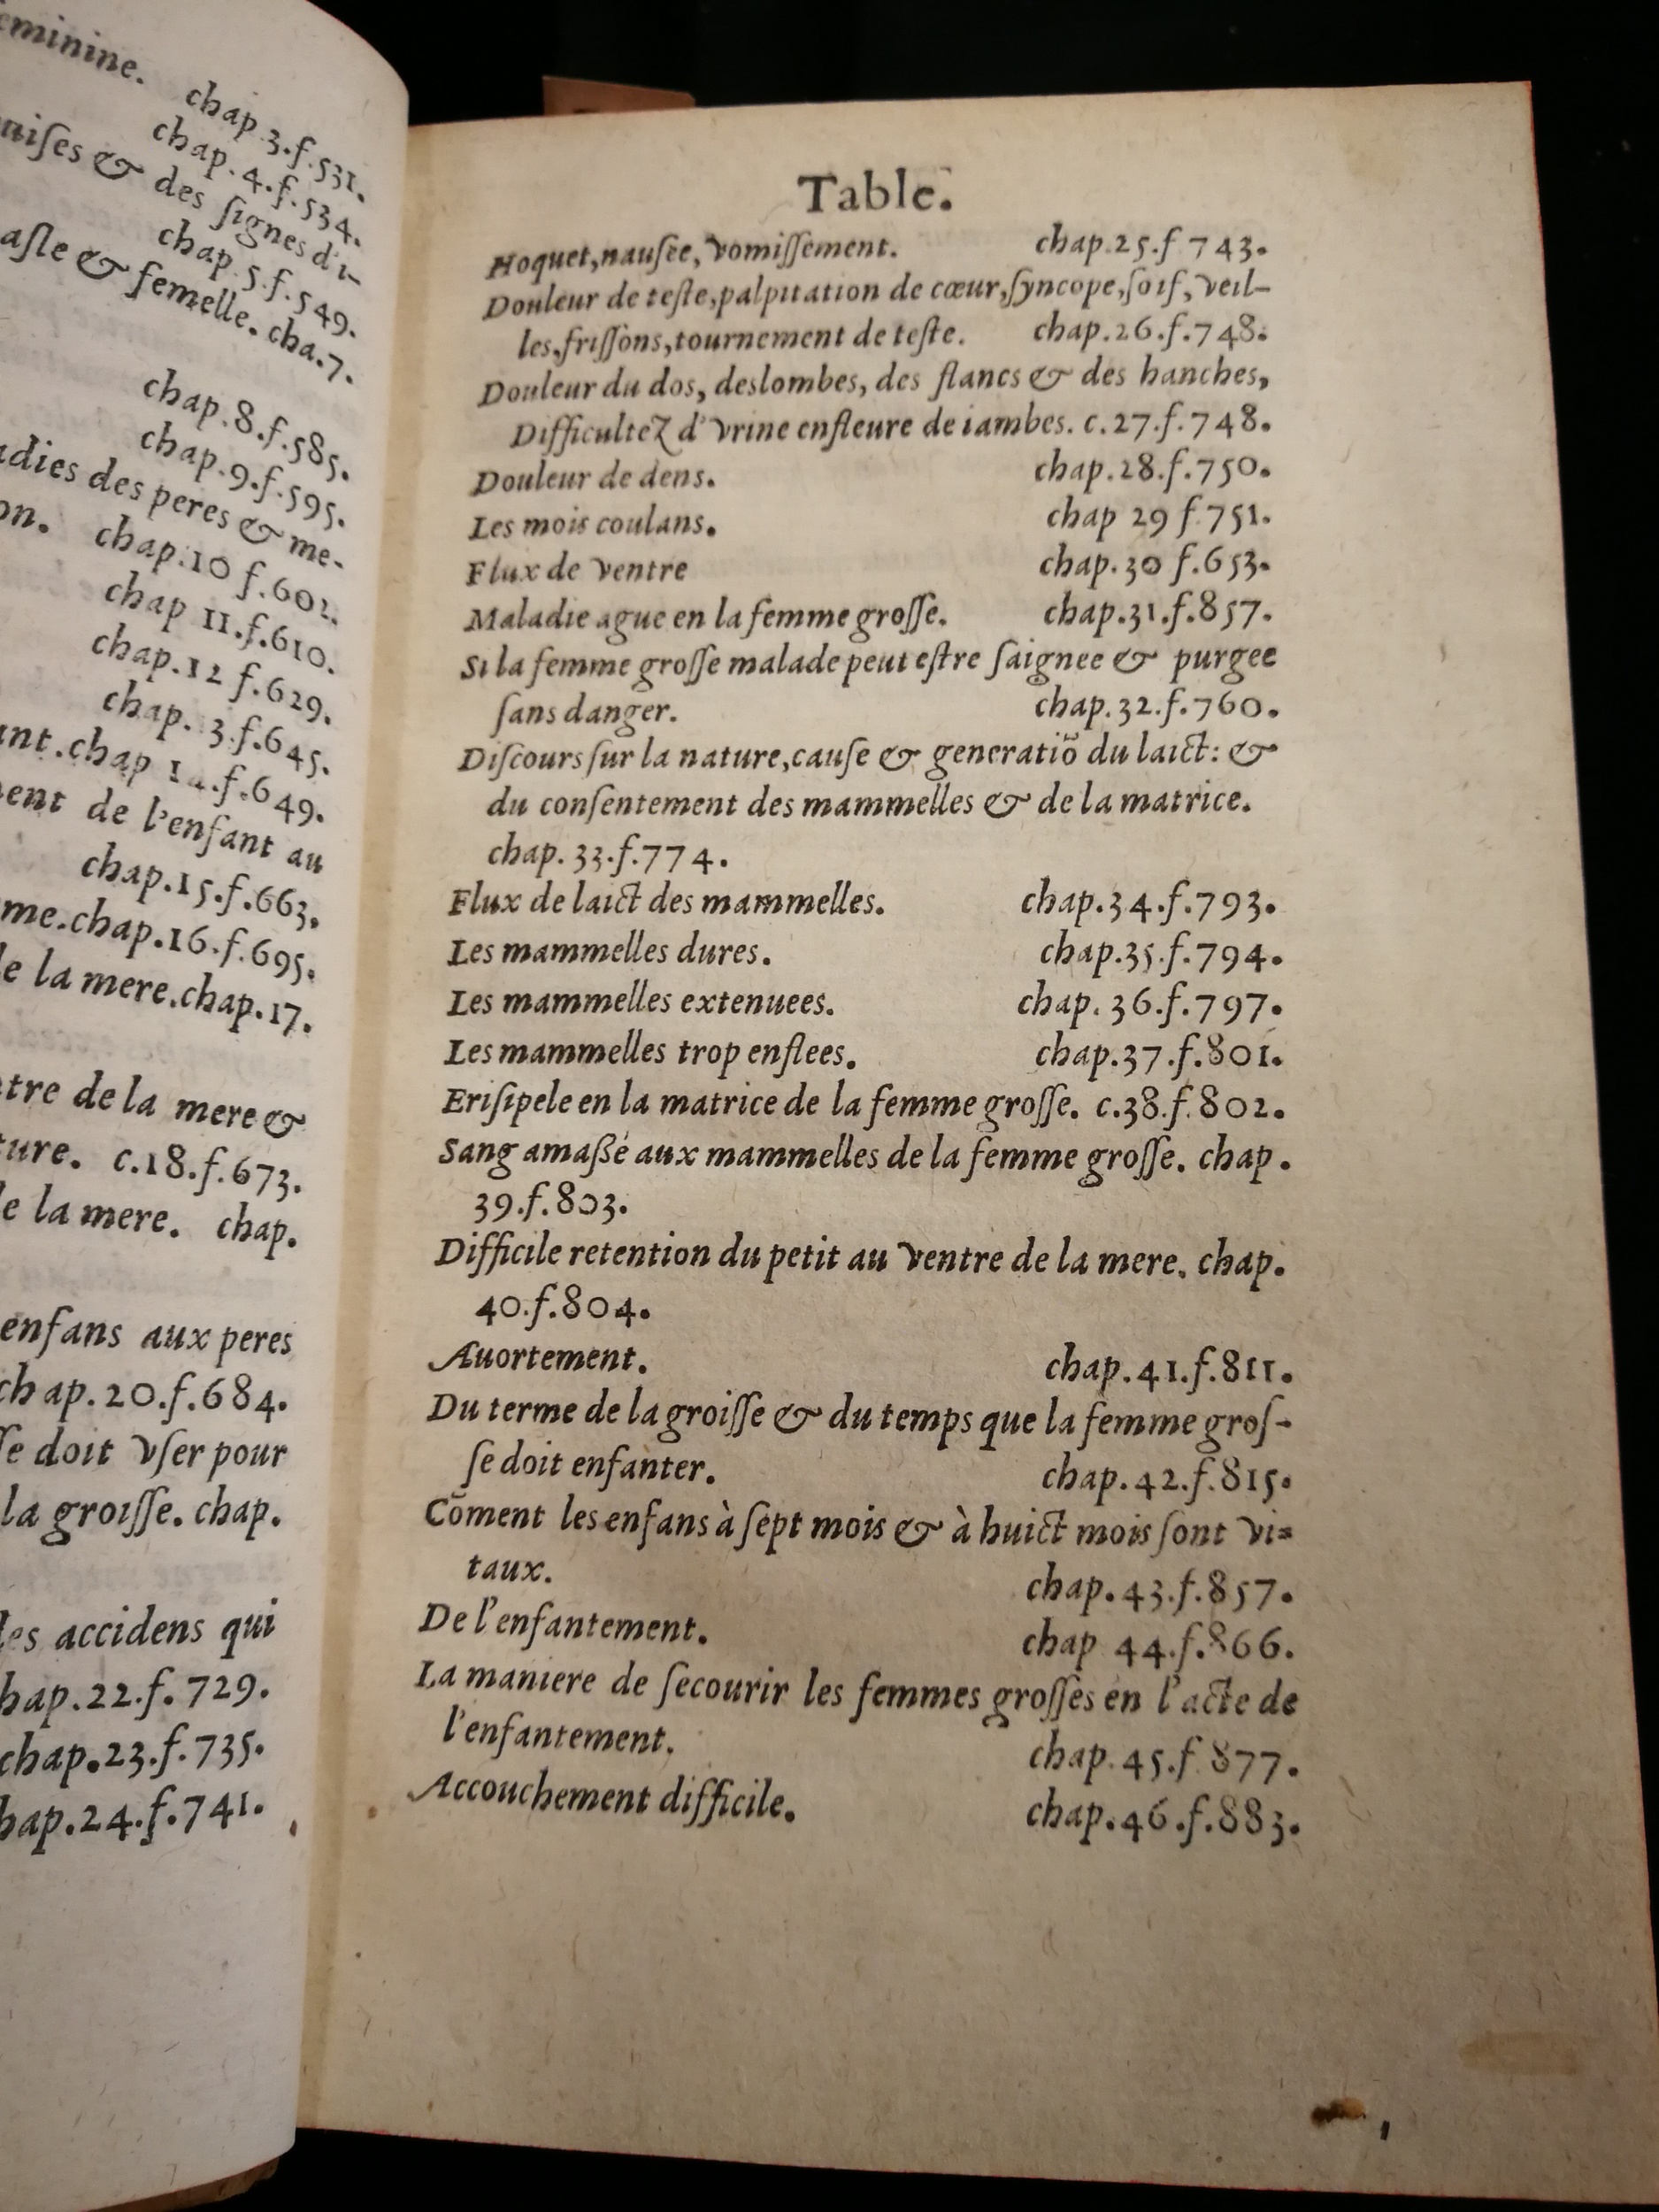 eminine.
chap.3.f.531.
chap.4.f.534.
uises & des ſignes d'i-
chap.5.f.549.
aſle & femelle. cha.7.
chap.8.f.585.
chap.9.f.595.
adies des peres & me-
on. chap.10 f.602.
chap 11.f.610.
chap.12 f.629.
chap. 3.f.645.
ant.chap 14.f.649.
ent de l'enfant au
chap.15.f.663.
me.chap.16.f.695.
le la mere.chap.17.
tre de la mere &
ture. c.18.f.673.
le la mere. chap.
enfans aux peres
chap.20.f.684.
ſe doit vſer pour
la groiſſe. chap.
les accidens qui
hap.22.f.729.
chap.23.f.735.
hap.24.f.741.
Table.
Hoquet,nauſée, vomiſſement. chap.25.f 743.
Douleur de teſte,palpitation de cœur,ſyncope,ſoif, veil-
les,friſſons,tournement de teſte. chap.26.f.748.
Douleur du dos, deslombes, des flancs & des hanches,
Difficultez d'vrine enfleure de iambes. c.27.f.748.
Douleur de dens. chap.28.f.750.
Les mois coulans. chap 29 f.751.
Flux de ventre chap.30 f.653.
Maladie ague en la femme groſſe. chap.31.f.857.
Si la femme groſſe malade peut eſtre ſaignee & purgee
ſans danger. chap.32.f.760.
Diſcours ſur la nature,cauſe & generatiō du laict: &
du conſentement des mammelles & de la matrice.
chap. 33.f.774.
Flux de laict des mammelles. chap.34.f.793.
Les mammelles dures. chap.35.f.794.
Les mammelles extenuees. chap. 36.f.797.
Les mammelles trop enflees. chap.37.f.801.
Eriſipele en la matrice de la femme groſſe. c.38.f.802.
Sang amaßé aux mammelles de la femme groſſe. chap.
39.f.803.
Difficile retention du petit au ventre de la mere. chap.
40.f.804.
Auortement. chap.41.f.811.
Du terme de la groiſſe & du temps que la femme groſ-
ſe doit enfanter. chap.42.f.815.
Cōment les enfans à ſept mois & à huict mois ſont vi-
taux. chap.43.f.857.
De l'enfantement. chap 44.f.866.
La maniere de ſecourir les femmes groſſes en l'acte de
l'enfantement. chap.45.f 877.
Accouchement difficile. chap.46.f.883.